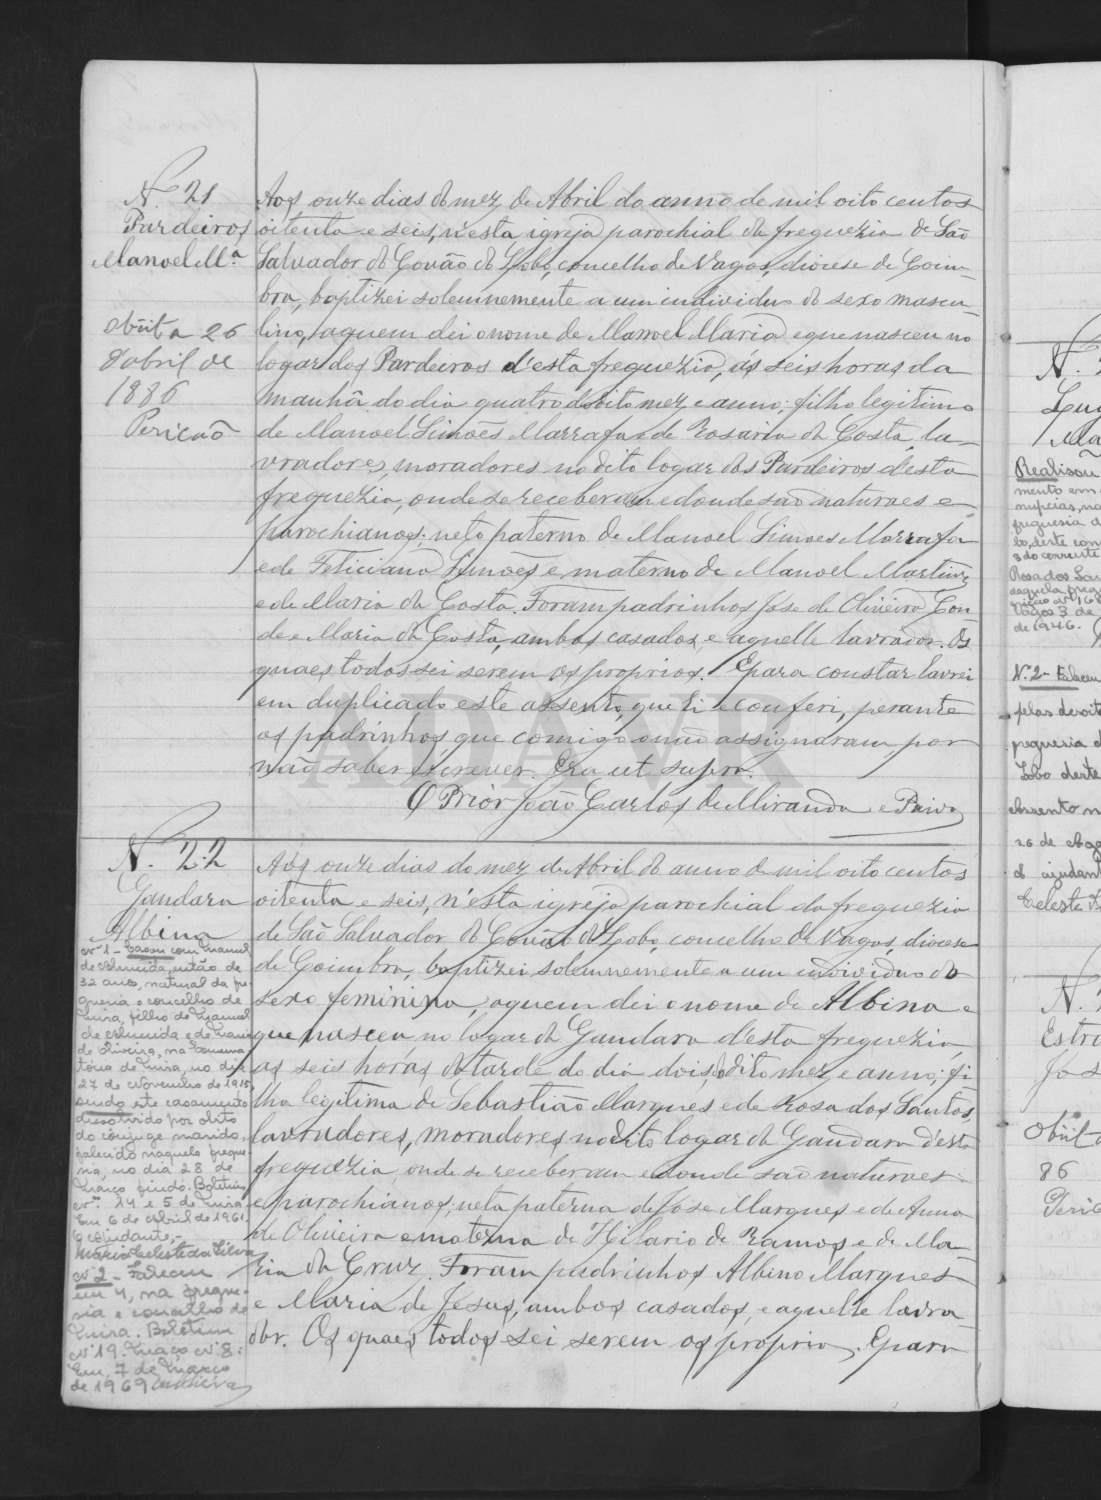 N. 21
Pardeiros
Manoel M.ª
Obiit a 26
d'abril de
1886
Pericão
Aos onze dias do mez de Abril do anno de mil oito centos
oitenta e seis, n'esta igreja parochial da freguezia de São
Salvador do Covão do Lobo, concelho de Vagos, diocese de Coim-
bra, baptizei solemnemente a um individuo do sexo mascu-
lino, aquem dei o nome de Manoel Maria e que nasceu no
logar dos Pardeiros d'esta freguezia, ás seis horas da
manhã do dia quatro do dito mez e anno; filho legitimo
de Manoel Simões Marrafa e de Rosaria da Costa, la-
vradores, moradores no dito logar dos Pardeiros d'esta
freguezia, onde se receberam e donde são naturaes e
parochianos; neto paterno de Manoel Simoes Marrafa
e de Feliciana Simões e materno de Manoel Martins
e de Maria da Costa. Foram padrinhos Jose de Oliveira Con-
de e Maria da Costa, ambos casados, e aquelle lavrador. Os
quaes todos sei serem os proprios. E para constar lavrei
em duplicado este assento, que li e conferi, perante
os padrinhos, que comigo o não assignaram, por
não saber escrever. Era ut supra.
O Prior João Carlos de Miranda e Paiva
N. 22
Gandara
Albina
Nº 1 - Casou com Manuel
de Almeida, então de
32 anos, natural da fre-
guesia e concelho de
Mira, filho de Manuel
de Almeida e de Maria
de Oliveira, na Conserva-
tória de Mira, no dia
27 de Novembro de 1915
sendo este casamento
dissolvido por óbito
do cônjuge marido,
falecido naquela fregue-
sia, no dia 28 de
Março findo. Boletins
nºs 14 e 5 de Mira.
Em 6 de Abril de 1961.
O ajudante,-
Maria Celeste da Silva
Nº 2 - Faleceu
em 4, na fregue-
sia e concelho de
Mira. Boletim
Nº 19. Maço Nº 8.
Em 7 de Março
de 1969
Aos onze dias do mez de Abril do anno de mil oito centos
oitenta e seis, n'esta igreja parochial da freguezia
de São Salvador do Covão do Lobo, concelho de Vagos, diocese
de Coimbra, baptizei solemnemente a um individuo do
sexo feminino, aquem dei o nome de Albina e
que nasceu no logar da Gandara d'esta freguezia
as seis horas da tarde do dia dois do dito mez e anno; fi-
lha legitima de Sebastião Marques e de Rosa dos Santos,
lavradores, moradores no dito logar da Gandara d'esta
freguezia onde se receberam e donde são naturaes
e parochianos; neta paterna de Jose Marques e de Anna
de Oliveira e materna de Hilario de Ramos e de Ma-
ria da Cruz. Foram padrinhos Albino Marques
e Maria de Jesus, ambos casados, e aquelle lavra-
dor. Os quaes todos sei serem os proprios. E para
N.
Realisou
mento em
nupcias, na
freguesia d
bo, deste con
3 do corrente
Rosa dos San
daquela freg
Vagos 3 de
de 1946.
Nº 2 - Faleceu
pelas dezoit
freguesia d
Lobo deste
Assento n
26 de Ago
O ajudant
Celeste
N.
Estra
Jos
Obiit a
86
Peric
ADAVR